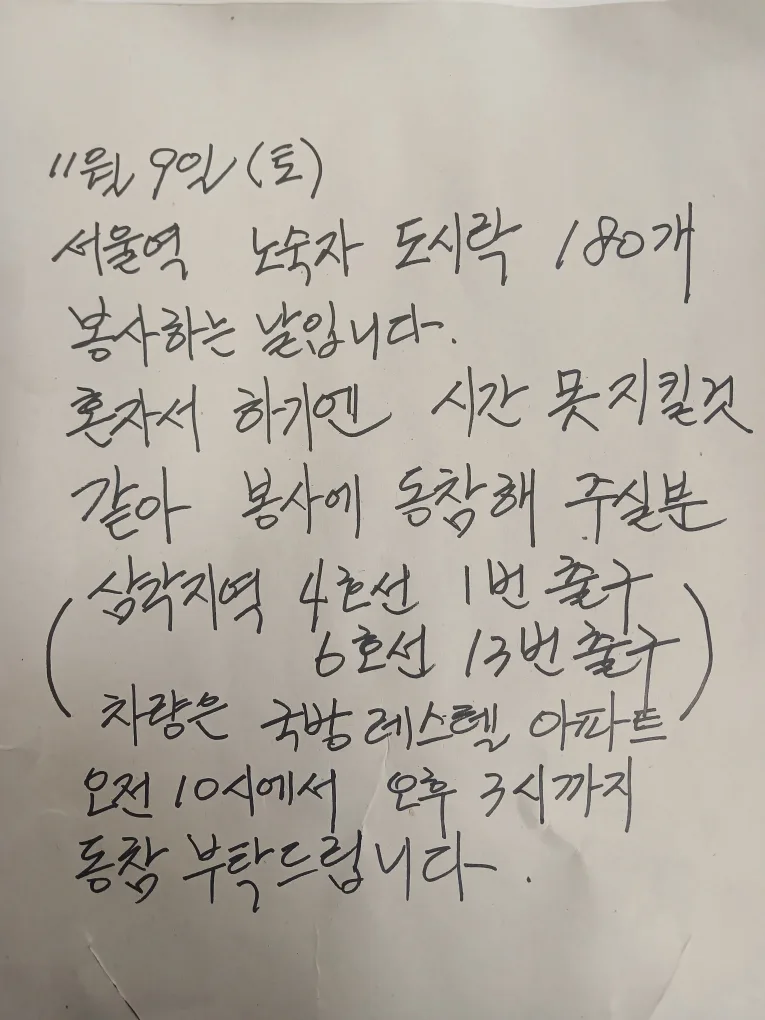 11월 9일 (토)
서울역 노숙자 도시락 180개
봉사하는 날입니다.
혼자서 하기엔 시간 못지킬것
같아 봉사에 동참해 주실분
(삼각지역 4호선 1번 출구
6호선 13번 출구
차량은 국방레스텔 아파트)
오전 10시에서 오후 3시까지
동참 부탁드립니다.